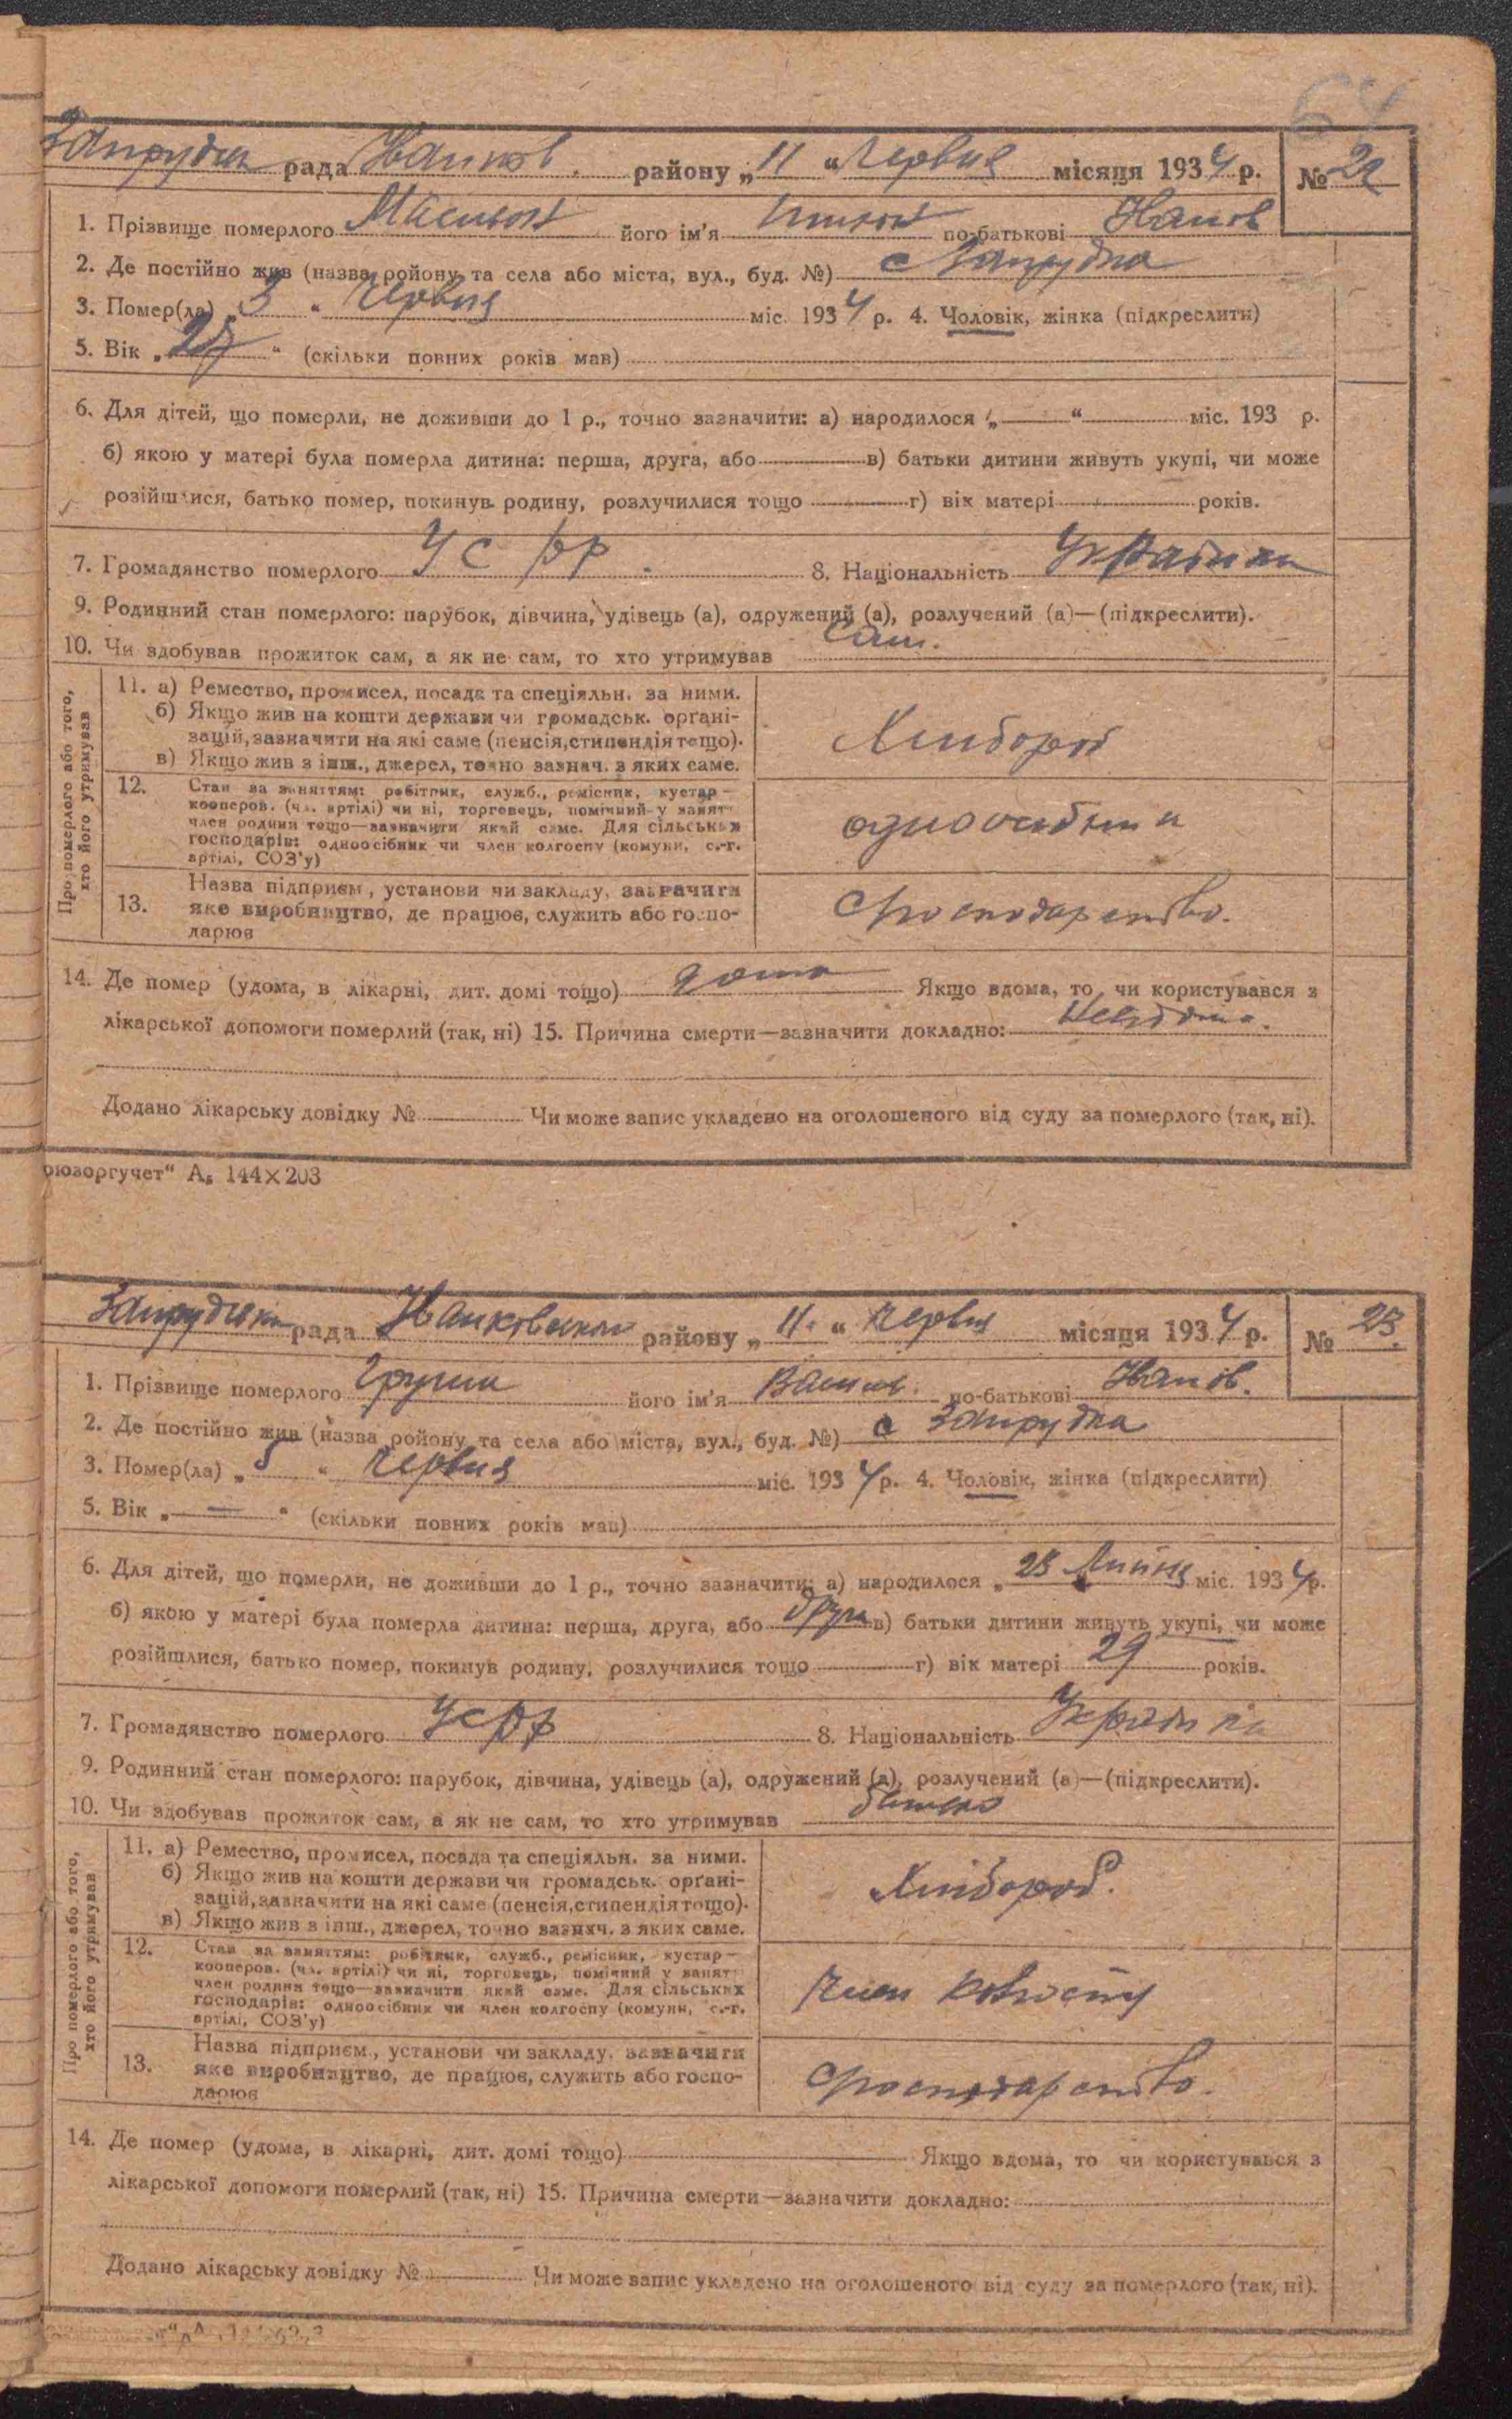 64
рада району „11“ Червня місяця 1934 р. № 22
1. Прізвище померлого його ім'я по-батькові Іванов
2. Де постійно жив (назва ройону та села або міста, вул., буд. №) с Запрудка
3. Помер(ла) „3“ Червня міс. 1934 р. 4. Чоловік, жінка (підкреслити)
5. Вік „ “ (скільки повних років мав)
6. Для дітей, що померли, не доживши до 1 р., точно зазначити: а) народилося „—“ міс. 193 р.
б) якою у матері була померла дитина: перша, друга, або — в) батьки дитини живуть укупі, чи може
розійшлися, батько помер, покинув родину, розлучилися тощо — г) вік матері — років.
7. Громадянство померлого УСРР. 8. Національність
9. Родинний стан померлого: парубок, дівчина, удівець (а), одружений (а), розлучений (а)—(підкреслити).
10. Чи здобував прожиток сам, а як не сам, то хто утримував Сам.
Про померлого або того,
хто його утримував
11. а) Ремество, промисел, посада та спеціяльн. за ними.
б) Якщо жив на кошти держави чи громадськ. орґані-
зацій, зазначити на які саме (пенсія, стипендія тощо).
в) Якщо жив з інш., джерел, точно зазнач. з яких саме.
Хлібороб
12. Стан за заняттям: робітник, служб., ремісник, кустар-
кооперов. (чл. артілі) чи ні, торговець, помічний у занят.
член родини тощо—зазначити який саме. Для сільських
господарів: одноосібник чи член колгоспу (комуни, с.-г.
артілі, СОЗ'у)
13. Назва підприєм., установи чи закладу, зазначити
яке виробництво, де працює, служить або госпо-
дарює
Господарство.
14. Де помер (удома, в лікарні, дит. домі тощо) дома Якщо вдома, то чи користувався з
лікарської допомоги померлий (так, ні) 15. Причина смерти—зазначити докладно: Невідомо.
Додано лікарську довідку № Чи може запис укладено на оголошеного від суду за померлого (так, ні).
юзоргучет“ А₅ 144×203
рада району „11.“ Червня місяця 1934 р. № 23.
1. Прізвище померлого його ім'я Васил. по-батькові Іванов.
2. Де постійно жив (назва ройону та села або міста, вул., буд. №) с Запрудка
3. Помер(ла) „5“ Червня міс. 1934 р. 4. Чоловік, жінка (підкреслити)
5. Вік „—“ (скільки повних років мав)
6. Для дітей, що померли, не доживши до 1 р., точно зазначити: а) народилося „ міс. 1934 р.
б) якою у матері була померла дитина: перша, друга, або друга в) батьки дитини живуть укупі, чи може
розійшлися, батько помер, покинув родину, розлучилися тощо — г) вік матері 29 років.
7. Громадянство померлого УСРР 8. Національність
9. Родинний стан померлого: парубок, дівчина, удівець (а), одружений (а), розлучений (а)—(підкреслити).
10. Чи здобував прожиток сам, а як не сам, то хто утримував батько
Про померлого або того,
хто його утримував
11. а) Ремество, промисел, посада та спеціяльн. за ними.
б) Якщо жив на кошти держави чи громадськ. орґані-
зацій, зазначити на які саме (пенсія, стипендія тощо).
в) Якщо жив з інш., джерел, точно зазнач. з яких саме.
Хлібороб.
12. Стан за заняттям: робітник, служб., ремісник, кустар-
кооперов. (чл. артілі) чи ні, торговець, помічний у занят.
член родини тощо—зазначити який саме. Для сільських
господарів: одноосібник чи член колгоспу (комуни, с.-г.
артілі, СОЗ'у)
Член колгоспу
13. Назва підприєм., установи чи закладу, зазначити
яке виробництво, де працює, служить або госпо-
дарює
Господарство.
14. Де помер (удома, в лікарні, дит. домі тощо) Якщо вдома, то чи користувався з
лікарської допомоги померлий (так, ні) 15. Причина смерти—зазначити докладно:
Додано лікарську довідку № Чи може запис укладено на оголошеного від суду за померлого (так, ні).